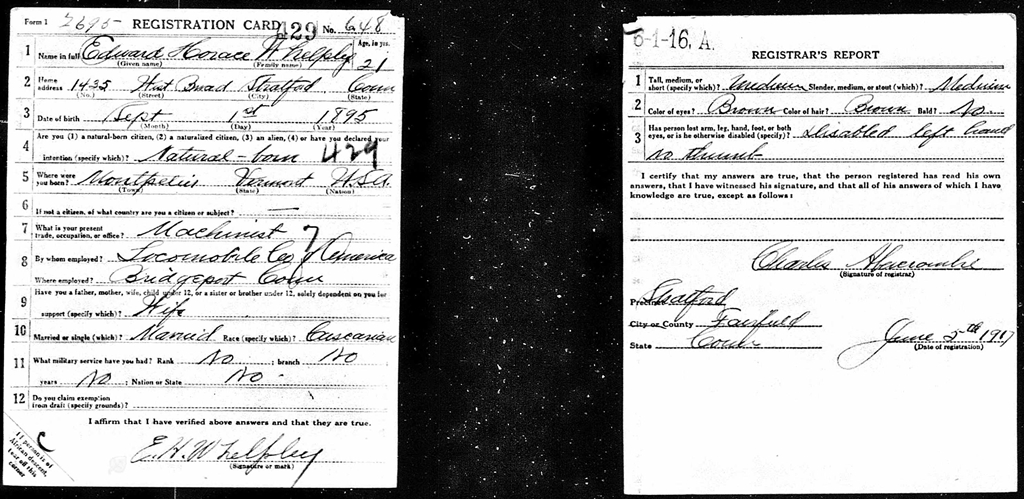 Form 1 2695 REGISTRATION CARD 429 No. 648
1 Name in full Edward Horace Whelpley Age, in yrs. 21
(Given name) (Family name)
2 Home address 1435 West Broad Stratford Conn
(No.) (Street) (City) (State)
3 Date of birth Sept 1st 1895
(Month) (Day) (Year)
Are you (1) a natural-born citizen, (2) a naturalized citizen, (3) an alien, (4) or have you declared your
4 intention (specify which)? Natural-born 429
5 Where were you born? Montpelier Vermont U.S.A.
(Town) (State) (Nation)
6 If not a citizen, of what country are you a citizen or subject? —
7 What is your present trade, occupation, or office? Machinist 7
8 By whom employed? Locomobile Co of America
Where employed? Bridgeport Conn
9 Have you a father, mother, wife, child under 12, or a sister or brother under 12, solely dependent on you for
support (specify which)? Wife
10 Married or single (which)? Married Race (specify which)? Cuscasian
11 What military service have you had? Rank No ; branch No
years No ; Nation or State No
12 Do you claim exemption from draft (specify grounds)?
I affirm that I have verified above answers and that they are true.
E. H. Whelpley
(Signature or mark)
C
If person is of
African descent,
tear off this
corner
6-1-16. A.
REGISTRAR'S REPORT
1 Tall, medium, or short (specify which)? Medium Slender, medium, or stout (which)? Medium
2 Color of eyes? Brown Color of hair? Brown Bald? No
3 Has person lost arm, leg, hand, foot, or both eyes, or is he otherwise disabled (specify)? Disabled left hand
no thumb
I certify that my answers are true, that the person registered has read his own
answers, that I have witnessed his signature, and that all of his answers of which I have
knowledge are true, except as follows:
Charles Abercrombie
(Signature of registrar)
Precinct Stratford
City or County Fairfield
State Conn
June 5th 1917
(Date of registration)